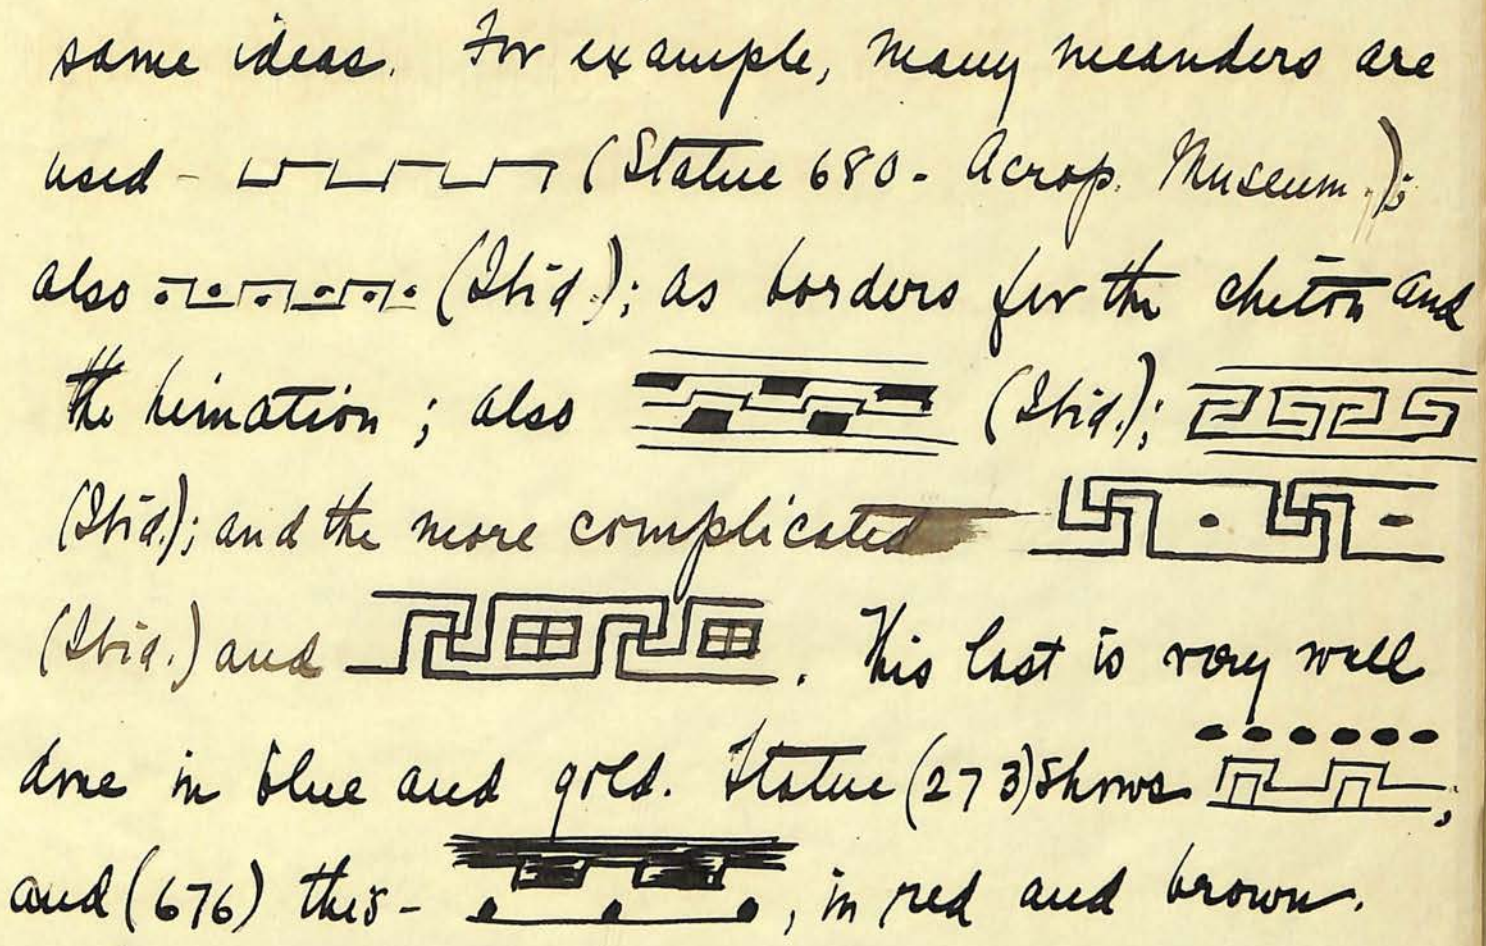 same ideas. For example, many meanders are
used - (Statue 680 - Acrop. Museum.);
also (Ibid.); as borders for the chiton and
the himation; also (Ibid.);
(Ibid.); and the more complicated
(Ibid.) and . This last is very well
done in blue and gold. Statue (273) shows ;
and (676) this - , in red and brown.